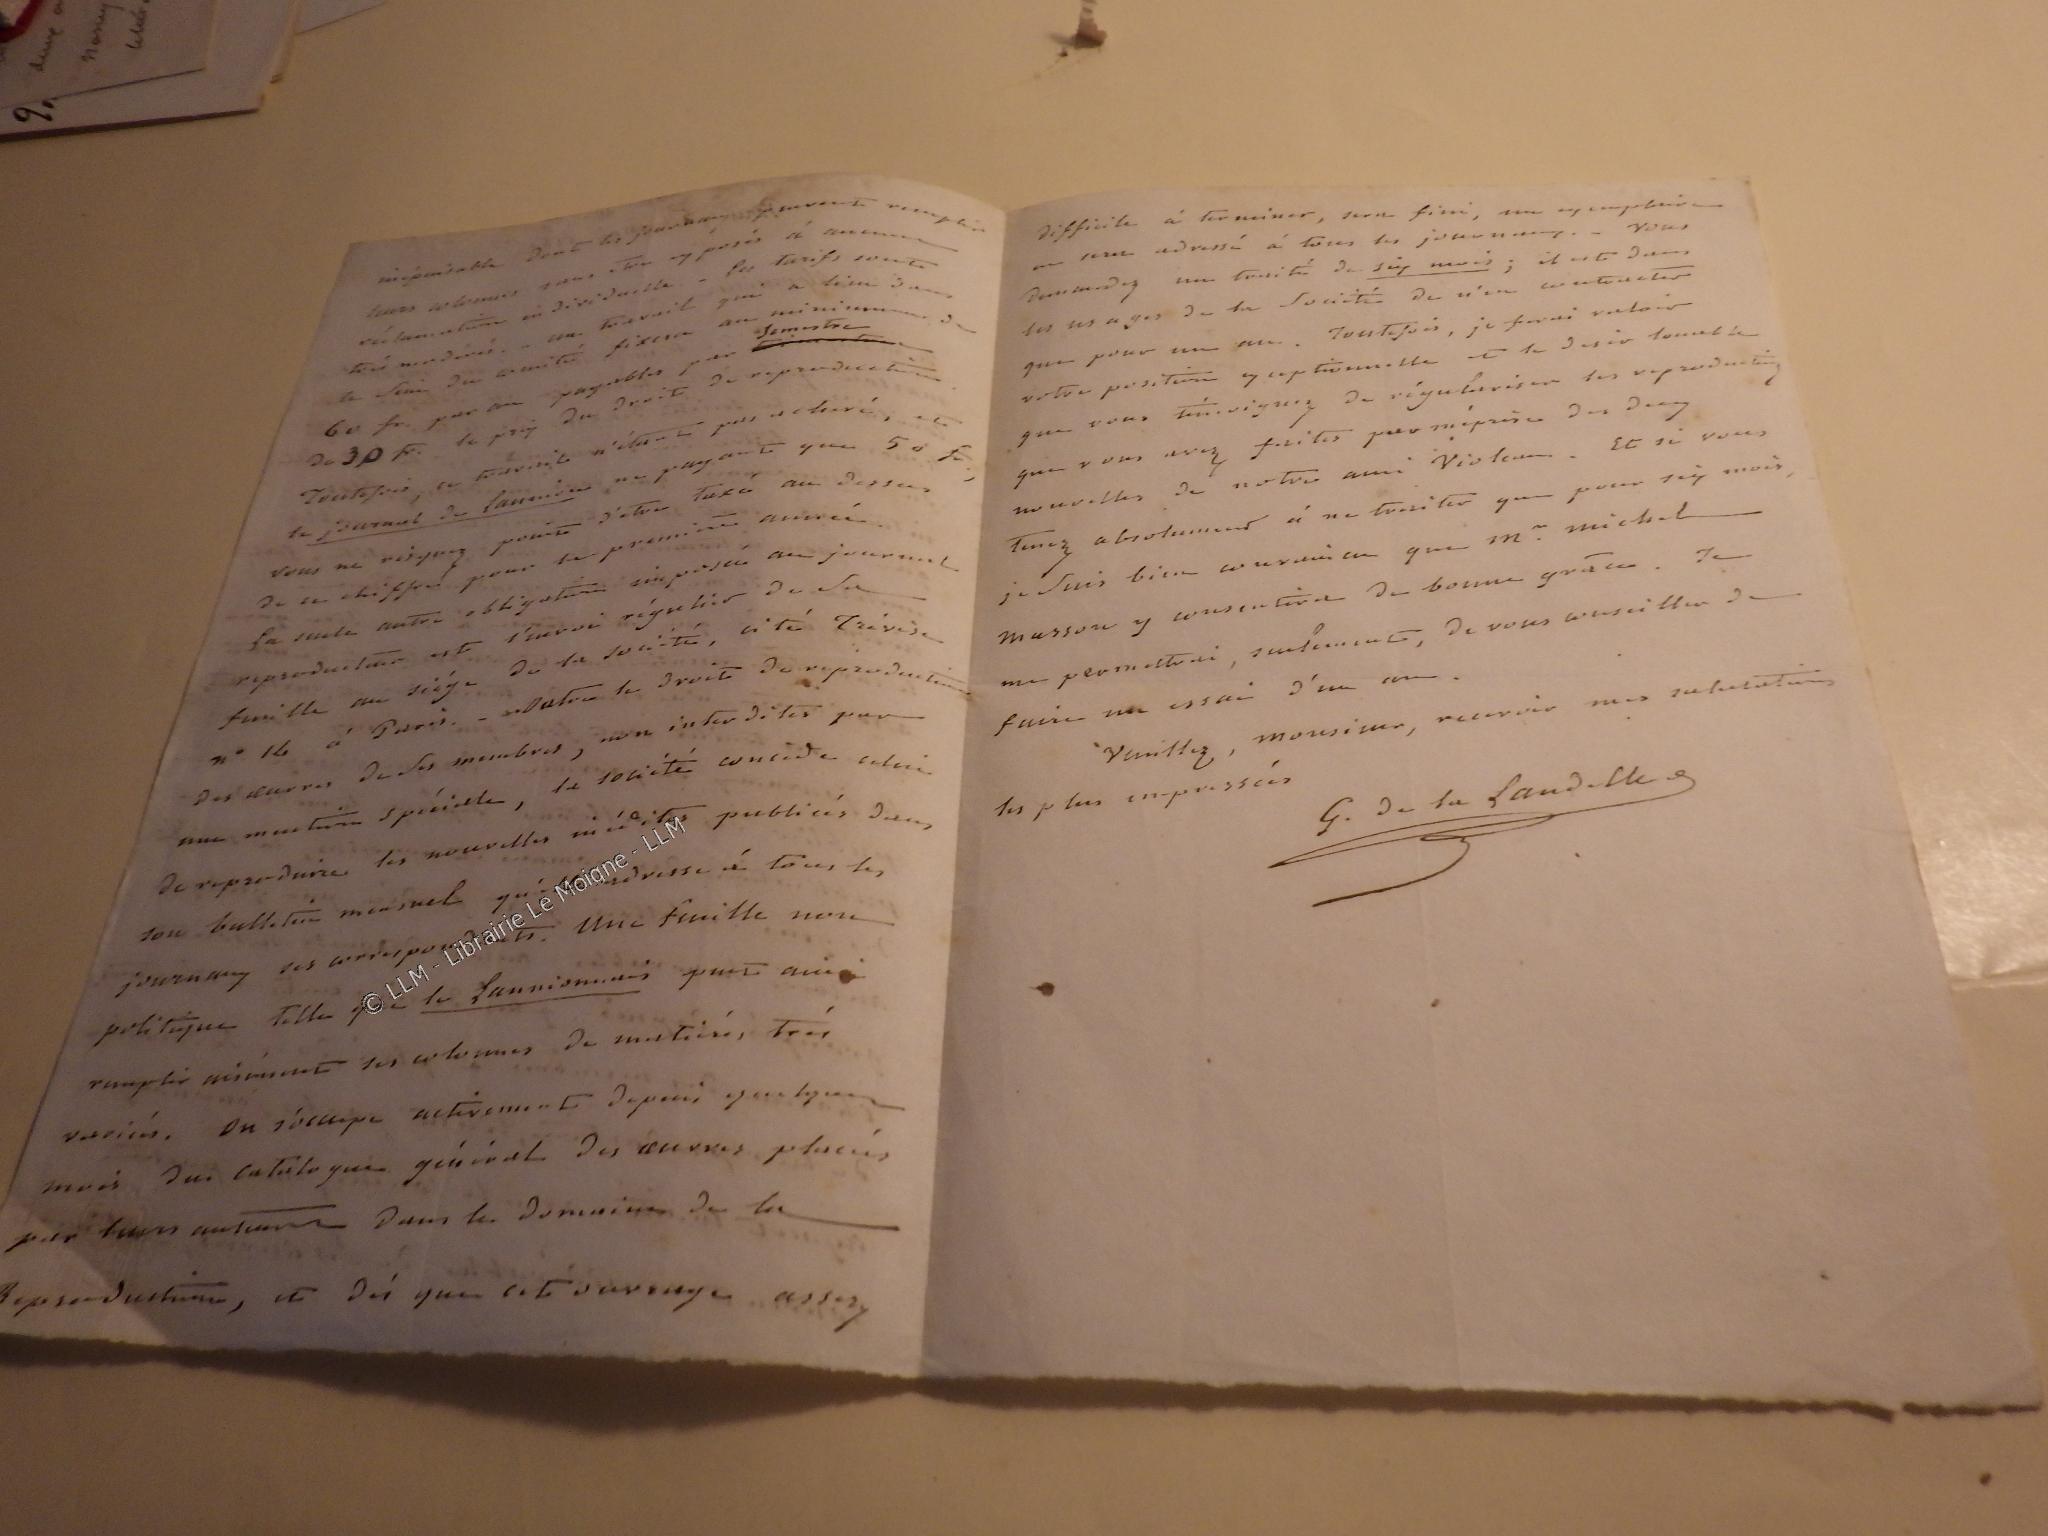 inépuisable dont les journaux peuvent remplir
leurs colonnes sans être exposés à aucune
réclamation individuelle. - Les tarifs sont
très modérés. - un travail qui a lieu dans
le sein du comité fixera au minimum de
60 fr. par an payables par semestre
de 30 fr. le prix du droit de reproduction.
Toutefois, ce travail n'étant pas achevé, et
le journal de Lannion ne payant que 50 fr.,
vous ne risquez point d'être taxé au dessus
de ce chiffre pour la première année.
La seule autre obligation imposée au journal
reproducteur est l'envoi régulier de sa
feuille au siège de la société, cité Trévise
n° 14 à Paris. - outre le droit de reproduction
des œuvres de ses membres, non interdites par
une mention spéciale, la société concède celui
de reproduire les nouvelles inédites publiées dans
son bulletin mensuel qu'elle adresse à tous les
journaux ses correspondants. Une feuille non
politique telle que le Lannionnais peut ainsi
remplir aisément ses colonnes de matières très
variées. On s'occupe activement depuis quelques
mois du catalogue général des œuvres placées
par leurs auteurs dans le domaine de la
Reproduction, et dès que cet ouvrage assez
difficile à terminer, sera fini, un exemplaire
en sera adressé à tous les journaux. - Vous
demandez un traité de six mois ; il est dans
les usages de la Société de n'en contracter
que pour un an. Toutefois, je ferai valoir
votre position exceptionnelle et le désir louable
que vous témoignez de régulariser les reproductions
que vous avez faites par méprise des deux
nouvelles de notre ami Violeau. Et si vous
tenez absolument à ne traiter que pour six mois,
je suis bien convaincu que Mr. Michel
Masson y consentira de bonne grâce. Je
me permettrai, seulement, de vous conseiller de
faire un essai d'un an.
Veuillez, monsieur, recevoir mes salutations
les plus empressées
G. de la Landelle
© LLM - Librairie Le Moigne - LLM